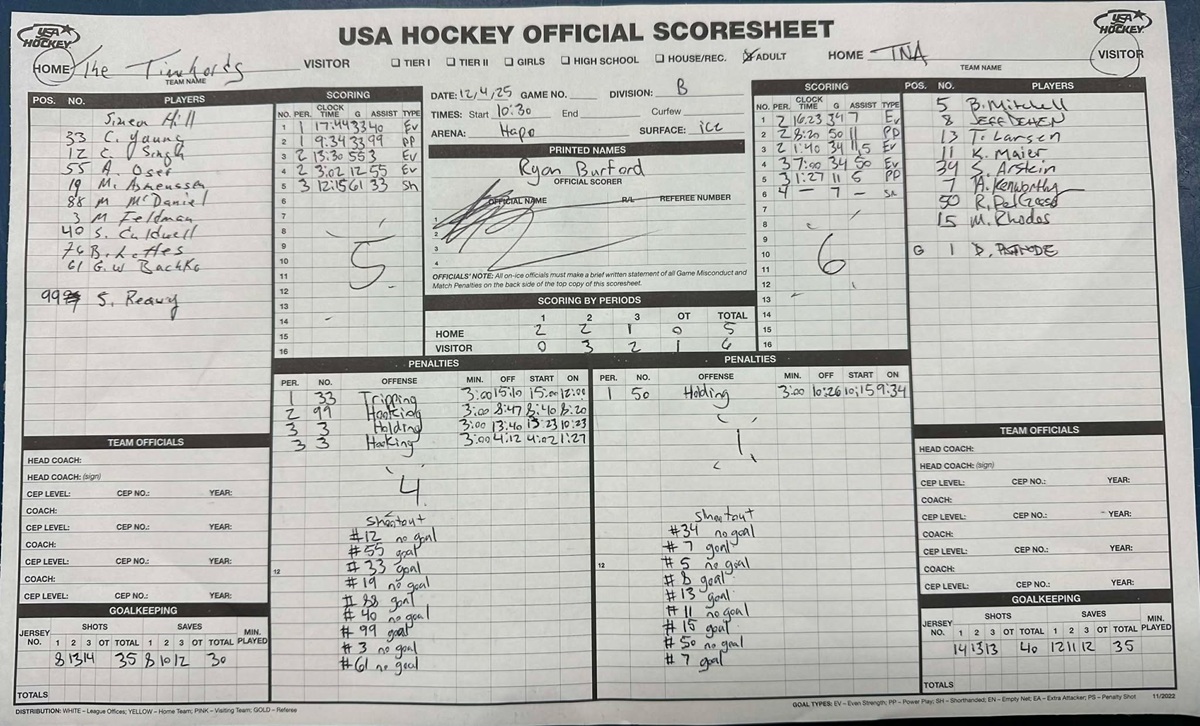 USA HOCKEY OFFICIAL SCORESHEET
USA HOCKEY
USA HOCKEY
HOME The Timelords VISITOR ☐ TIER I ☐ TIER II ☐ GIRLS ☐ HIGH SCHOOL ☐ HOUSE/REC. ☒ ADULT HOME TNA VISITOR
TEAM NAME
TEAM NAME
POS. NO. PLAYERS
Simon Hill
33 C. Young
12 C. Singh
55 A. Oser
19 M. Asmussen
88 M McDaniel
3 M Feldman
40 S. Caldwell
76 B. Lattes
61 G.W Bachko
99 S. Reavy
SCORING
NO. PER. CLOCK TIME G ASSIST TYPE
1 1 17:44 33 40 Ev
2 1 9:34 33 99 PP
3 2 13:30 55 3 Ev
4 2 3:02 12 55 Ev
5 3 12:15 61 33 Sh
6
7
8
9
10
11
12
13
14
15
16
5
DATE: 12/4/25 GAME NO. DIVISION: B
TIMES: Start 10:30 End Curfew
ARENA: Hapo SURFACE: ice
PRINTED NAMES
Ryan Burford
OFFICIAL SCORER
OFFICIAL NAME R/L REFEREE NUMBER
1
2
3
4
OFFICIALS' NOTE: All on-ice officials must make a brief written statement of all Game Misconduct and
Match Penalties on the back side of the top copy of this scoresheet.
SCORING BY PERIODS
1 2 3 OT TOTAL
HOME 2 2 1 0 5
VISITOR 0 3 2 1 6
SCORING
NO. PER. CLOCK TIME G ASSIST TYPE
1 2 16:23 34 7 Ev
2 2 8:20 50 11 PP
3 2 1:40 34 11,5 Ev
4 3 7:00 34 50 Ev
5 3 1:27 11 5 PP
6 4 — 7 —
7
8
9
10
11
12
13
14
15
16
6
POS. NO. PLAYERS
5 B. Mitchell
8 JEFF DEHEN
13 T. Larsen
11 K. Maier
34 S. Arstein
7 A. Kenworthy
50
15 M. Rhodes
G 1
PENALTIES
PER. NO. OFFENSE MIN. OFF START ON
1 33 Tripping 3:00 15:10 15:00 12:00
2 99 Hooking 3:00 8:47 8:40 8:20
3 3 Holding 3:00 13:40 13:23 10:23
3 3 Hooking 3:00 4:12 4:02 1:27
4
Shootout
#12 no goal
#55 goal
12 #33 goal
#19 no goal
#88 goal
#40 no goal
#99 goal
#3 no goal
#61 no goal
PENALTIES
PER. NO. OFFENSE MIN. OFF START ON
1 50 Holding 3:00 10:26 10:15 9:34
1
Shootout
#34 no goal
#7 goal
12 #5 no goal
#8 goal
#13 goal
#11 no goal
#15 goal
#50 no goal
#7 goal
TEAM OFFICIALS
HEAD COACH:
HEAD COACH: (sign)
CEP LEVEL: CEP NO.: YEAR:
COACH:
CEP LEVEL: CEP NO.: YEAR:
COACH:
CEP LEVEL: CEP NO.: YEAR:
COACH:
CEP LEVEL: CEP NO.: YEAR:
GOALKEEPING
JERSEY NO. SHOTS SAVES MIN. PLAYED
1 2 3 OT TOTAL 1 2 3 OT TOTAL
8 13 14 35 8 10 12 30
TOTALS
TEAM OFFICIALS
HEAD COACH:
HEAD COACH: (sign)
CEP LEVEL: CEP NO.: YEAR:
COACH:
CEP LEVEL: CEP NO.: YEAR:
COACH:
CEP LEVEL: CEP NO.: YEAR:
COACH:
CEP LEVEL: CEP NO.: YEAR:
GOALKEEPING
JERSEY NO. SHOTS SAVES MIN. PLAYED
1 2 3 OT TOTAL 1 2 3 OT TOTAL
14 13 13 40 12 11 12 35
TOTALS
DISTRIBUTION: WHITE – League Offices; YELLOW – Home Team; PINK – Visiting Team; GOLD – Referee
GOAL TYPES: EV – Even Strength; PP – Power Play; SH – Shorthanded; EN – Empty Net; EA – Extra Attacker; PS – Penalty Shot 11/2022